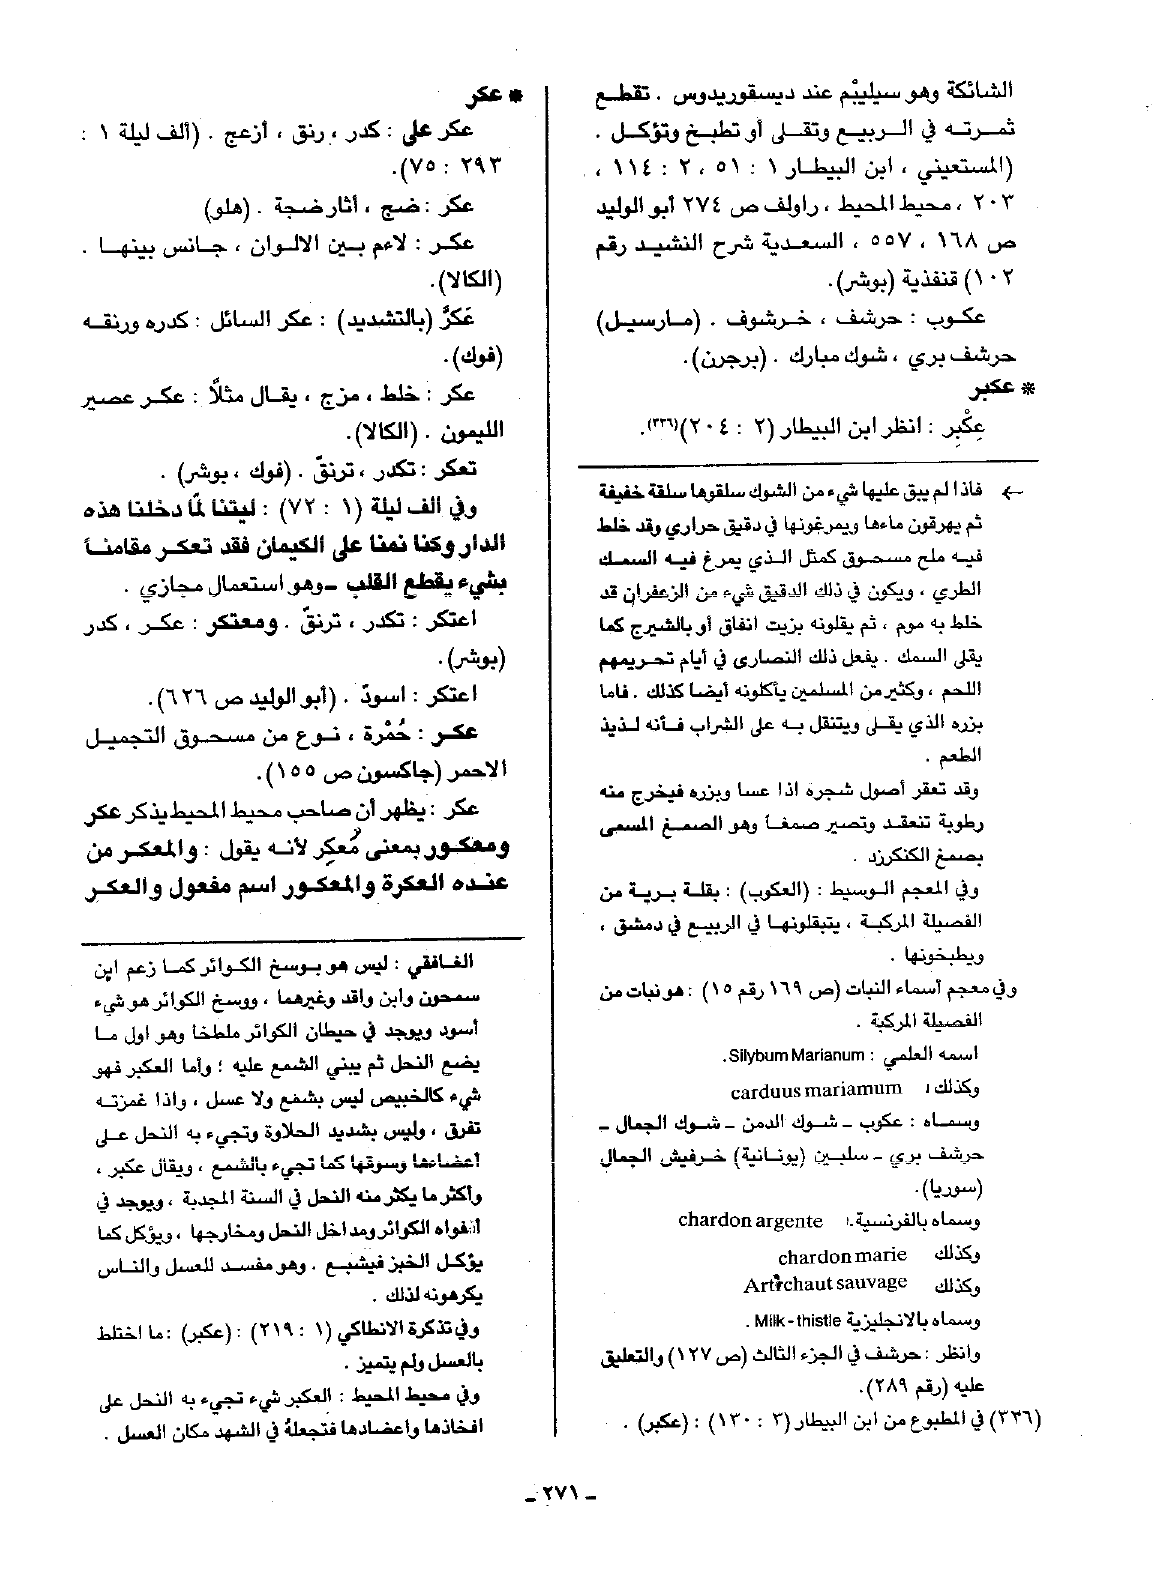 الشائكة وهو سيليبُم عند ديسقوريدوس . تقطع
ثمرته في الربيع وتقلى أو تطبخ وتؤكل .
(المستعيني ، ابن البيطار ١ : ٥١ ، ٢ : ١١٤ ،
٢٠٣ ، محيط المحيط ، راولف ص ٢٧٤ أبو الوليد
ص ١٦٨ ، ٥٥٧ ، السعدية شرح النشيد رقم
١٠٢) قنفذية (بوشر).
عكوب : حرشف ، خرشوف . (مارسيل)
حرشف بري ، شوك مبارك . (برجرن).
* عكبر
عِكْبِر : انظر ابن البيطار (٢ : ٢٠٤)(٣٣٦).
← فاذا لم يبق عليها شيء من الشوك سلقوها سلقة خفيفة
ثم يهرقون ماءها ويمرغونها في دقيق حراري وقد خلط
فيه ملح مسحوق كمثل الذي يمرغ فيه السمك
الطري ، ويكون في ذلك الدقيق شيء من الزعفران قد
خلط به موم ، ثم يقلونه بزيت انفاق أو بالشيرج كما
يقلى السمك . يفعل ذلك النصارى في أيام تحريمهم
اللحم ، وكثير من المسلمين يأكلونه أيضا كذلك . فاما
بزره الذي يقلى ويتنقل به على الشراب فأنه لذيذ
الطعم .
وقد تعقر أصول شجره اذا عسا وبزره فيخرج منه
رطوبة تنعقد وتصير صمغاً وهو الصمغ المسمى
بصمغ الكنكرزد .
وفي المعجم الوسيط : (العكوب) : بقلة برية من
الفصيلة المركبة ، يتبقلونها في الربيع في دمشق ،
ويطبخونها .
وفي معجم أسماء النبات (ص ١٦٩ رقم ١٥) : هو نبات من
الفصيلة المركبة .
اسمه العلمي : Silybum Marianum.
وكذلك : carduus mariamum
وسماه : عكوب ـ شوك الدمن ـ شوك الجمال ـ
حرشف بري ـ سلبين (يونانية) خرفيش الجمال
(سوريا).
وسماه بالفرنسية : chardon argente
وكذلك chardon marie
وكذلك Artichaut sauvage
وسماه بالانجليزية Milk-thistle .
وانظر : حرشف في الجزء الثالث (ص ١٢٧) والتعليق
عليه (رقم ٢٨٩).
(٣٣٦) في المطبوع من ابن البيطار (٣ : ١٣٠) : (عكبر) .
* عكر
عكر على : كدر ، رنق ، أزعج . (ألف ليلة ١ :
٢٩٣ : ٧٥).
عكر : ضج ، أثار ضجة . (هلو)
عكر : لاءم بين الالوان ، جانس بينها .
(الكالا).
عَكرَّ (بالتشديد) : عكر السائل : كدره ورنقه
(فوك).
عكر : خلط ، مزج ، يقال مثلاً : عكر عصير
الليمون . (الكالا).
تعكر : تكدر ، ترنقّ . (فوك ، بوشر) .
وفي الف ليلة (١ : ٧٢) : ليتنا لمّا دخلنا هذه
الدار وكنا نمنا على الكيمان فقد تعكر مقامنا
بشيء يقطع القلب ـ وهو استعمال مجازي .
اعتكر : تكدر ، ترنقّ . ومعتكر : عكر ، كدر
(بوشر).
اعتكر : اسودّ . (أبو الوليد ص ٦٢٦).
عكر : حُمْرة ، نوع من مسحوق التجميل
الاحمر (جاكسون ص ١٥٥).
عكر : يظهر أن صاحب محيط المحيط يذكر عكر
ومعكور بمعنى مُعكِر لأنه يقول : والمعكر من
عنده العكرة والمعكور اسم مفعول والعكر
الغافقي : ليس هو بوسخ الكوائر كما زعم ابن
سمحون وابن وافد وغيرهما ، ووسخ الكوائر هو شيء
أسود ويوجد في حيطان الكوائر ملطخا وهو اول ما
يضع النحل ثم يبني الشمع عليه ؛ وأما العكبر فهو
شيء كالخبيص ليس بشمع ولا عسل ، واذا غمزته
تفرق ، وليس بشديد الحلاوة وتجيء به النحل على
أعضاءها وسوقها كما تجيء بالشمع ، ويقال عكبر ،
وأكثر ما يكثر منه النحل في السنة المجدبة ، ويوجد في
أفواه الكوائر ومداخل النحل ومخارجها ، ويؤكل كما
يؤكل الخبز فيشبع . وهو مفسد للعسل والناس
يكرهونه لذلك .
وفي تذكرة الانطاكي (١ : ٢١٩) : (عكبر) : ما اختلط
بالعسل ولم يتميز .
وفي محيط المحيط : العكبر شيء تجيء به النحل على
افخاذها وأعضادها فتجعلهُ في الشهد مكان العسل .
ـ ٢٧١ ـ